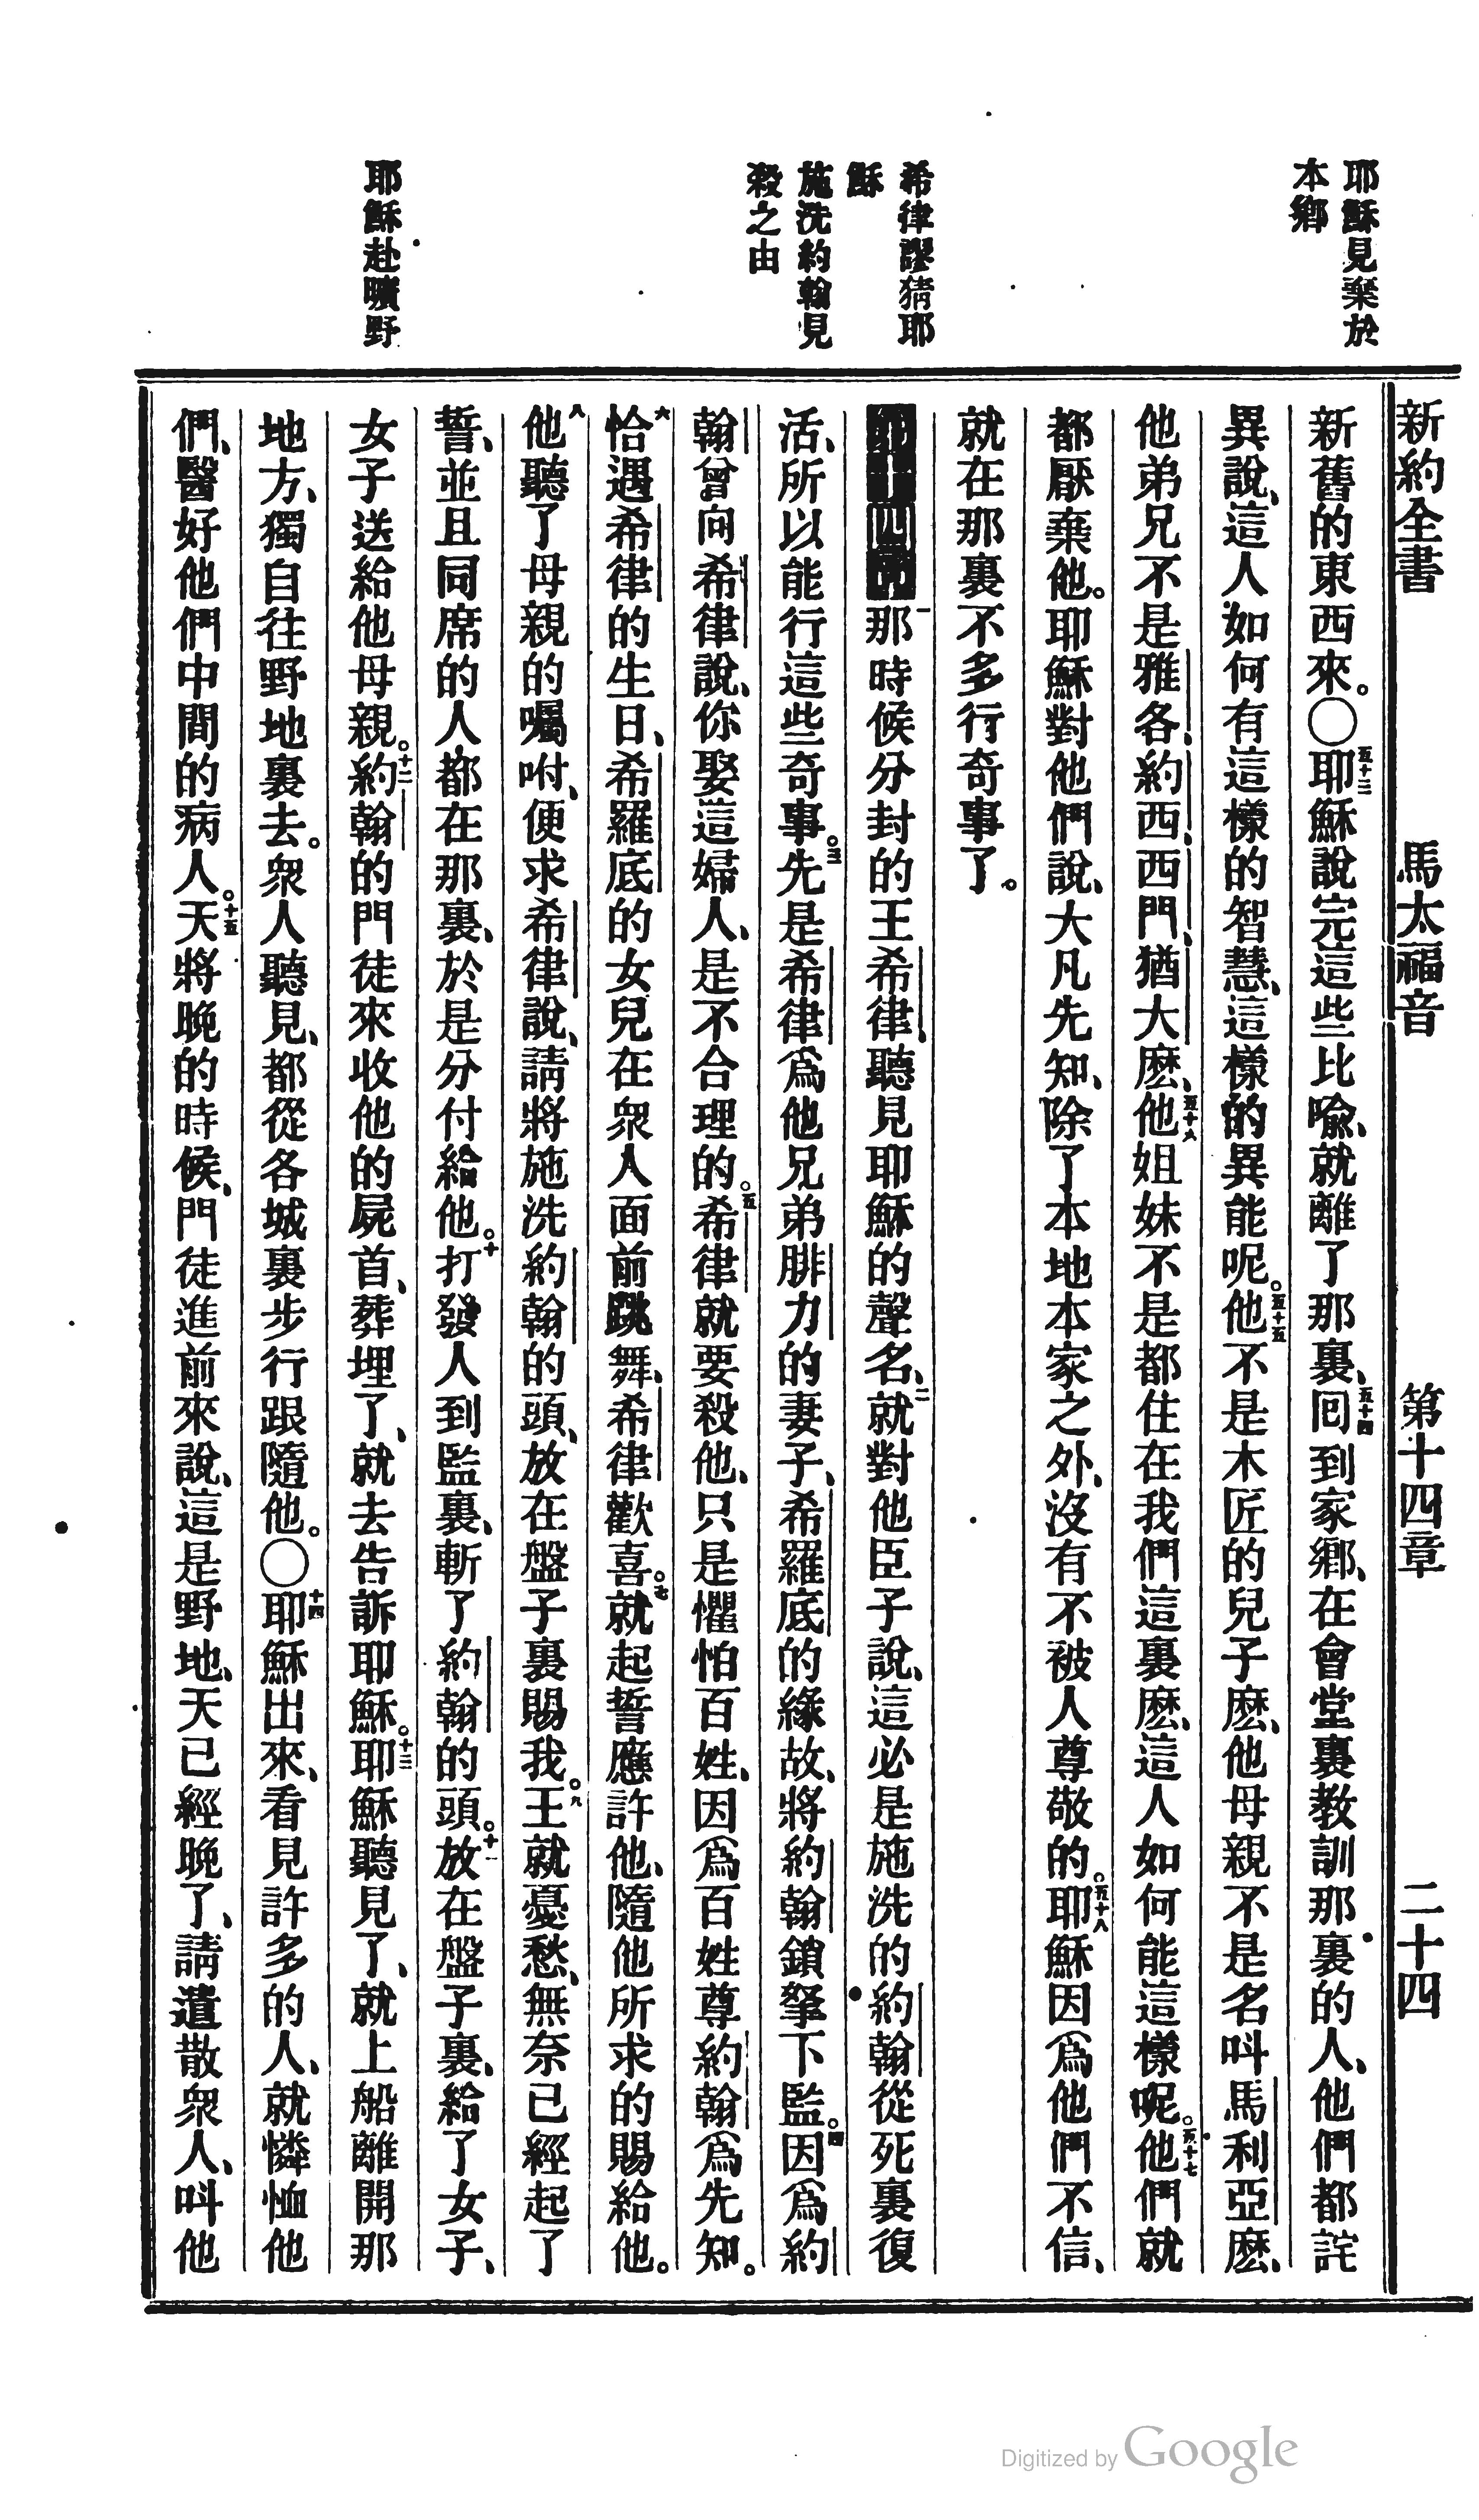 耶穌見棄於
本鄉
希律謬猜耶
穌
施洗約翰見
殺之由
耶穌赴曠野
新約全書 馬太福音 第十四章 二十四
新舊的東西來。〇五十三耶穌說完這些比喩、就離了那裏、五十四回到家鄉、在會堂裏教訓那裏的人、他們都詫
異說、這人如何有這樣的智慧、這樣的異能呢。五十五他不是木匠的兒子麽、他母親不是名呌馬利亞麽、
他弟兄不是雅各、約西、西門、猶大麽、五十六他姐妹不是都住在我們這裏麽、這人如何能這樣呢。五十七他們就
都厭棄他。耶穌對他們說、大凡先知、除了本地本家之外、沒有不被人尊敬的。五十八耶穌因爲他們不信、
就在那裏不多行奇事了。
第十四章一那時候分封的王希律、聽見耶穌的聲名、二就對他臣子說、這必是施洗的約翰從死裏復
活、所以能行這些奇事。三先是希律爲他兄弟腓力的妻子、希羅底的緣故、將約翰鎖拏下監。四因爲約
翰曾向希律說、你娶這婦人、是不合理的。五希律就要殺他、只是懼怕百姓、因爲百姓尊約翰爲先知。
六恰遇希律的生日、希羅底的女兒在衆人面前跳舞、希律歡喜。七就起誓應許他、隨他所求的賜給他。
八他聽了母親的囑咐、便求希律說、請將施洗約翰的頭、放在盤子裏賜我。九王就憂愁、無奈已經起了
誓、並且同席的人都在那裏、於是分付給他。十打發人到監裏、斬了約翰的頭。十一放在盤子裏、給了女子、
女子送給他母親。十二約翰的門徒來收他的屍首、葬埋了、就去告訴耶穌。十三耶穌聽見了、就上船離開那
地方、獨自往野地裏去。衆人聽見、都從各城裏步行跟隨他。〇十四耶穌出來、看見許多的人、就憐恤他
們、醫好他們中間的病人。十五天將晚的時候、門徒進前來說、這是野地、天已經晚了、請遣散衆人、呌他
Digitized by Google